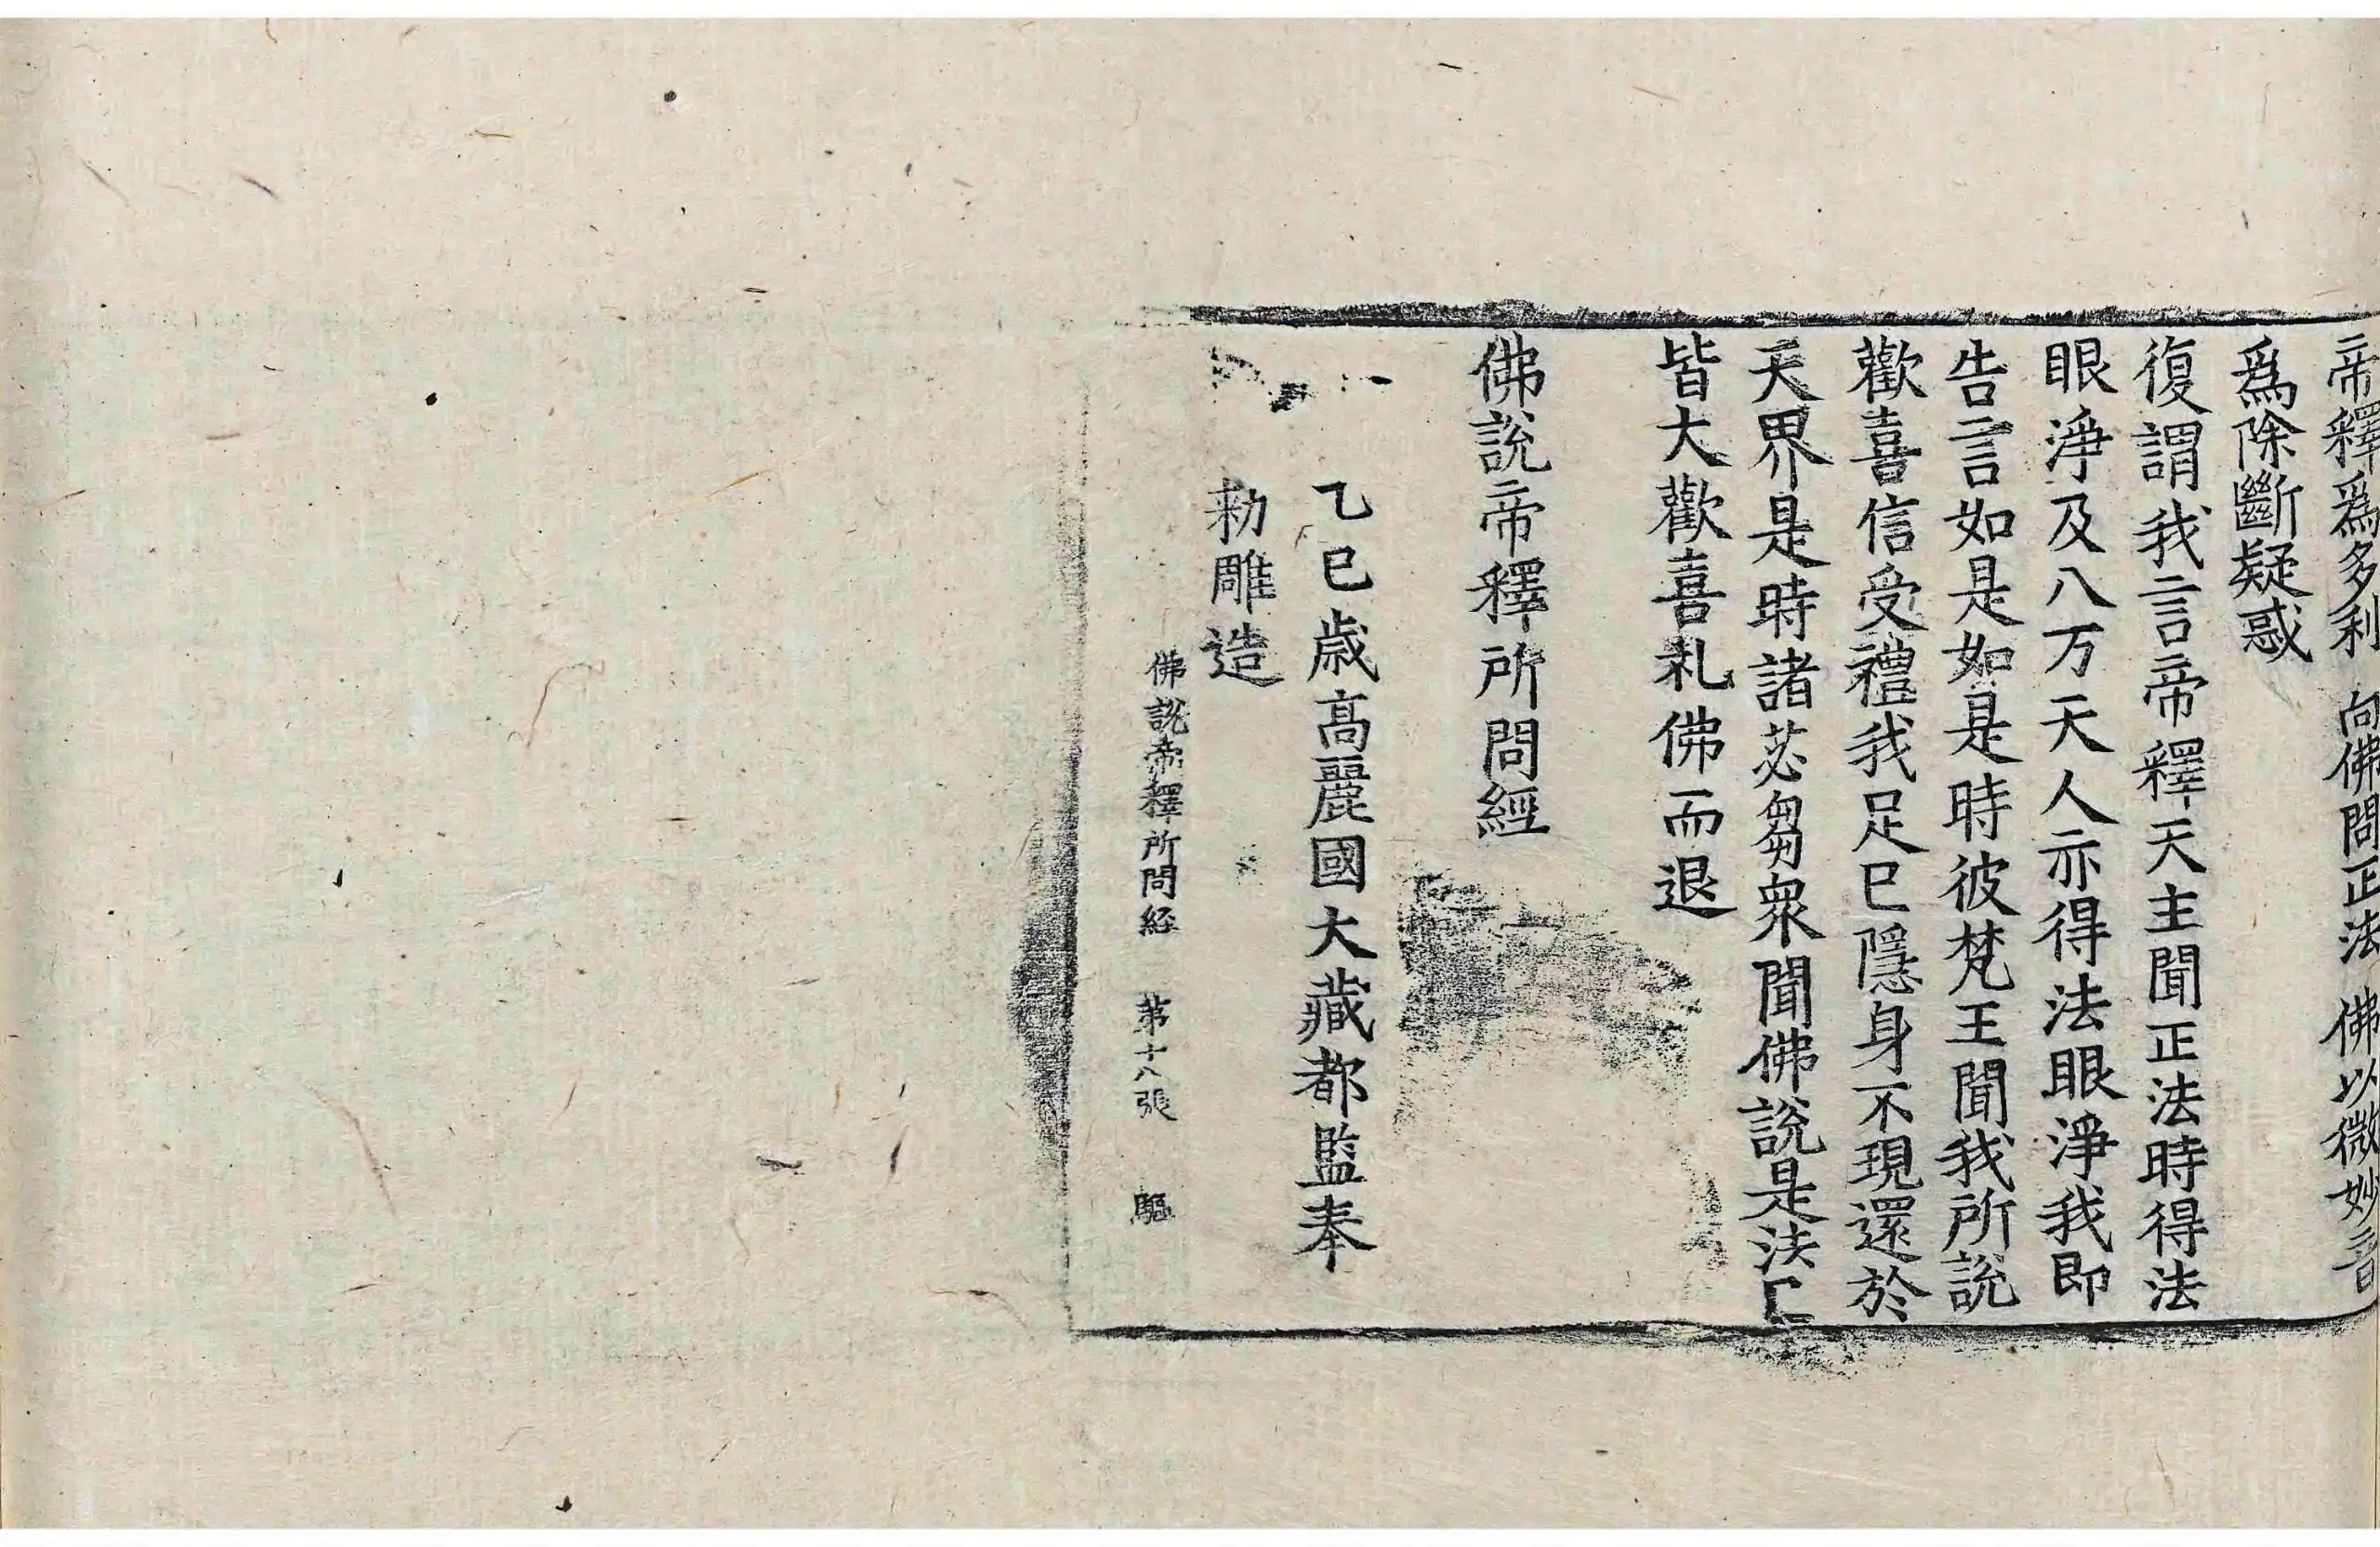 帝釋爲多利 向佛問正法 佛以微妙音
爲除斷疑惑
復謂我言帝釋天主聞正法時得法
眼淨及八万天人亦得法眼淨我即
告言如是如是時彼梵王聞我所說
歡喜信受禮我足已隱身不現還於
天界是時諸苾芻衆聞佛說是法已
皆大歡喜礼佛而退
佛說帝釋所問經
乙巳歲高麗國大藏都監奉
勑雕造
佛說帝釋所問経 第十八張 驅